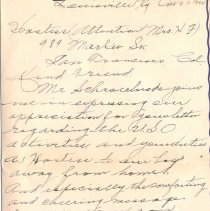 Louisville, Ky Oct 27, 1944
Hostess, Attention Mrs. H. F.
989 Market St.
San Francisco Cal.
Kind Friend
Mr Schrac joins
me in expressing our
appreciation for your letter
regarding the USO
activities and your duties
as Hostess to our boys
away from home
and especially the comforting
and cheering message